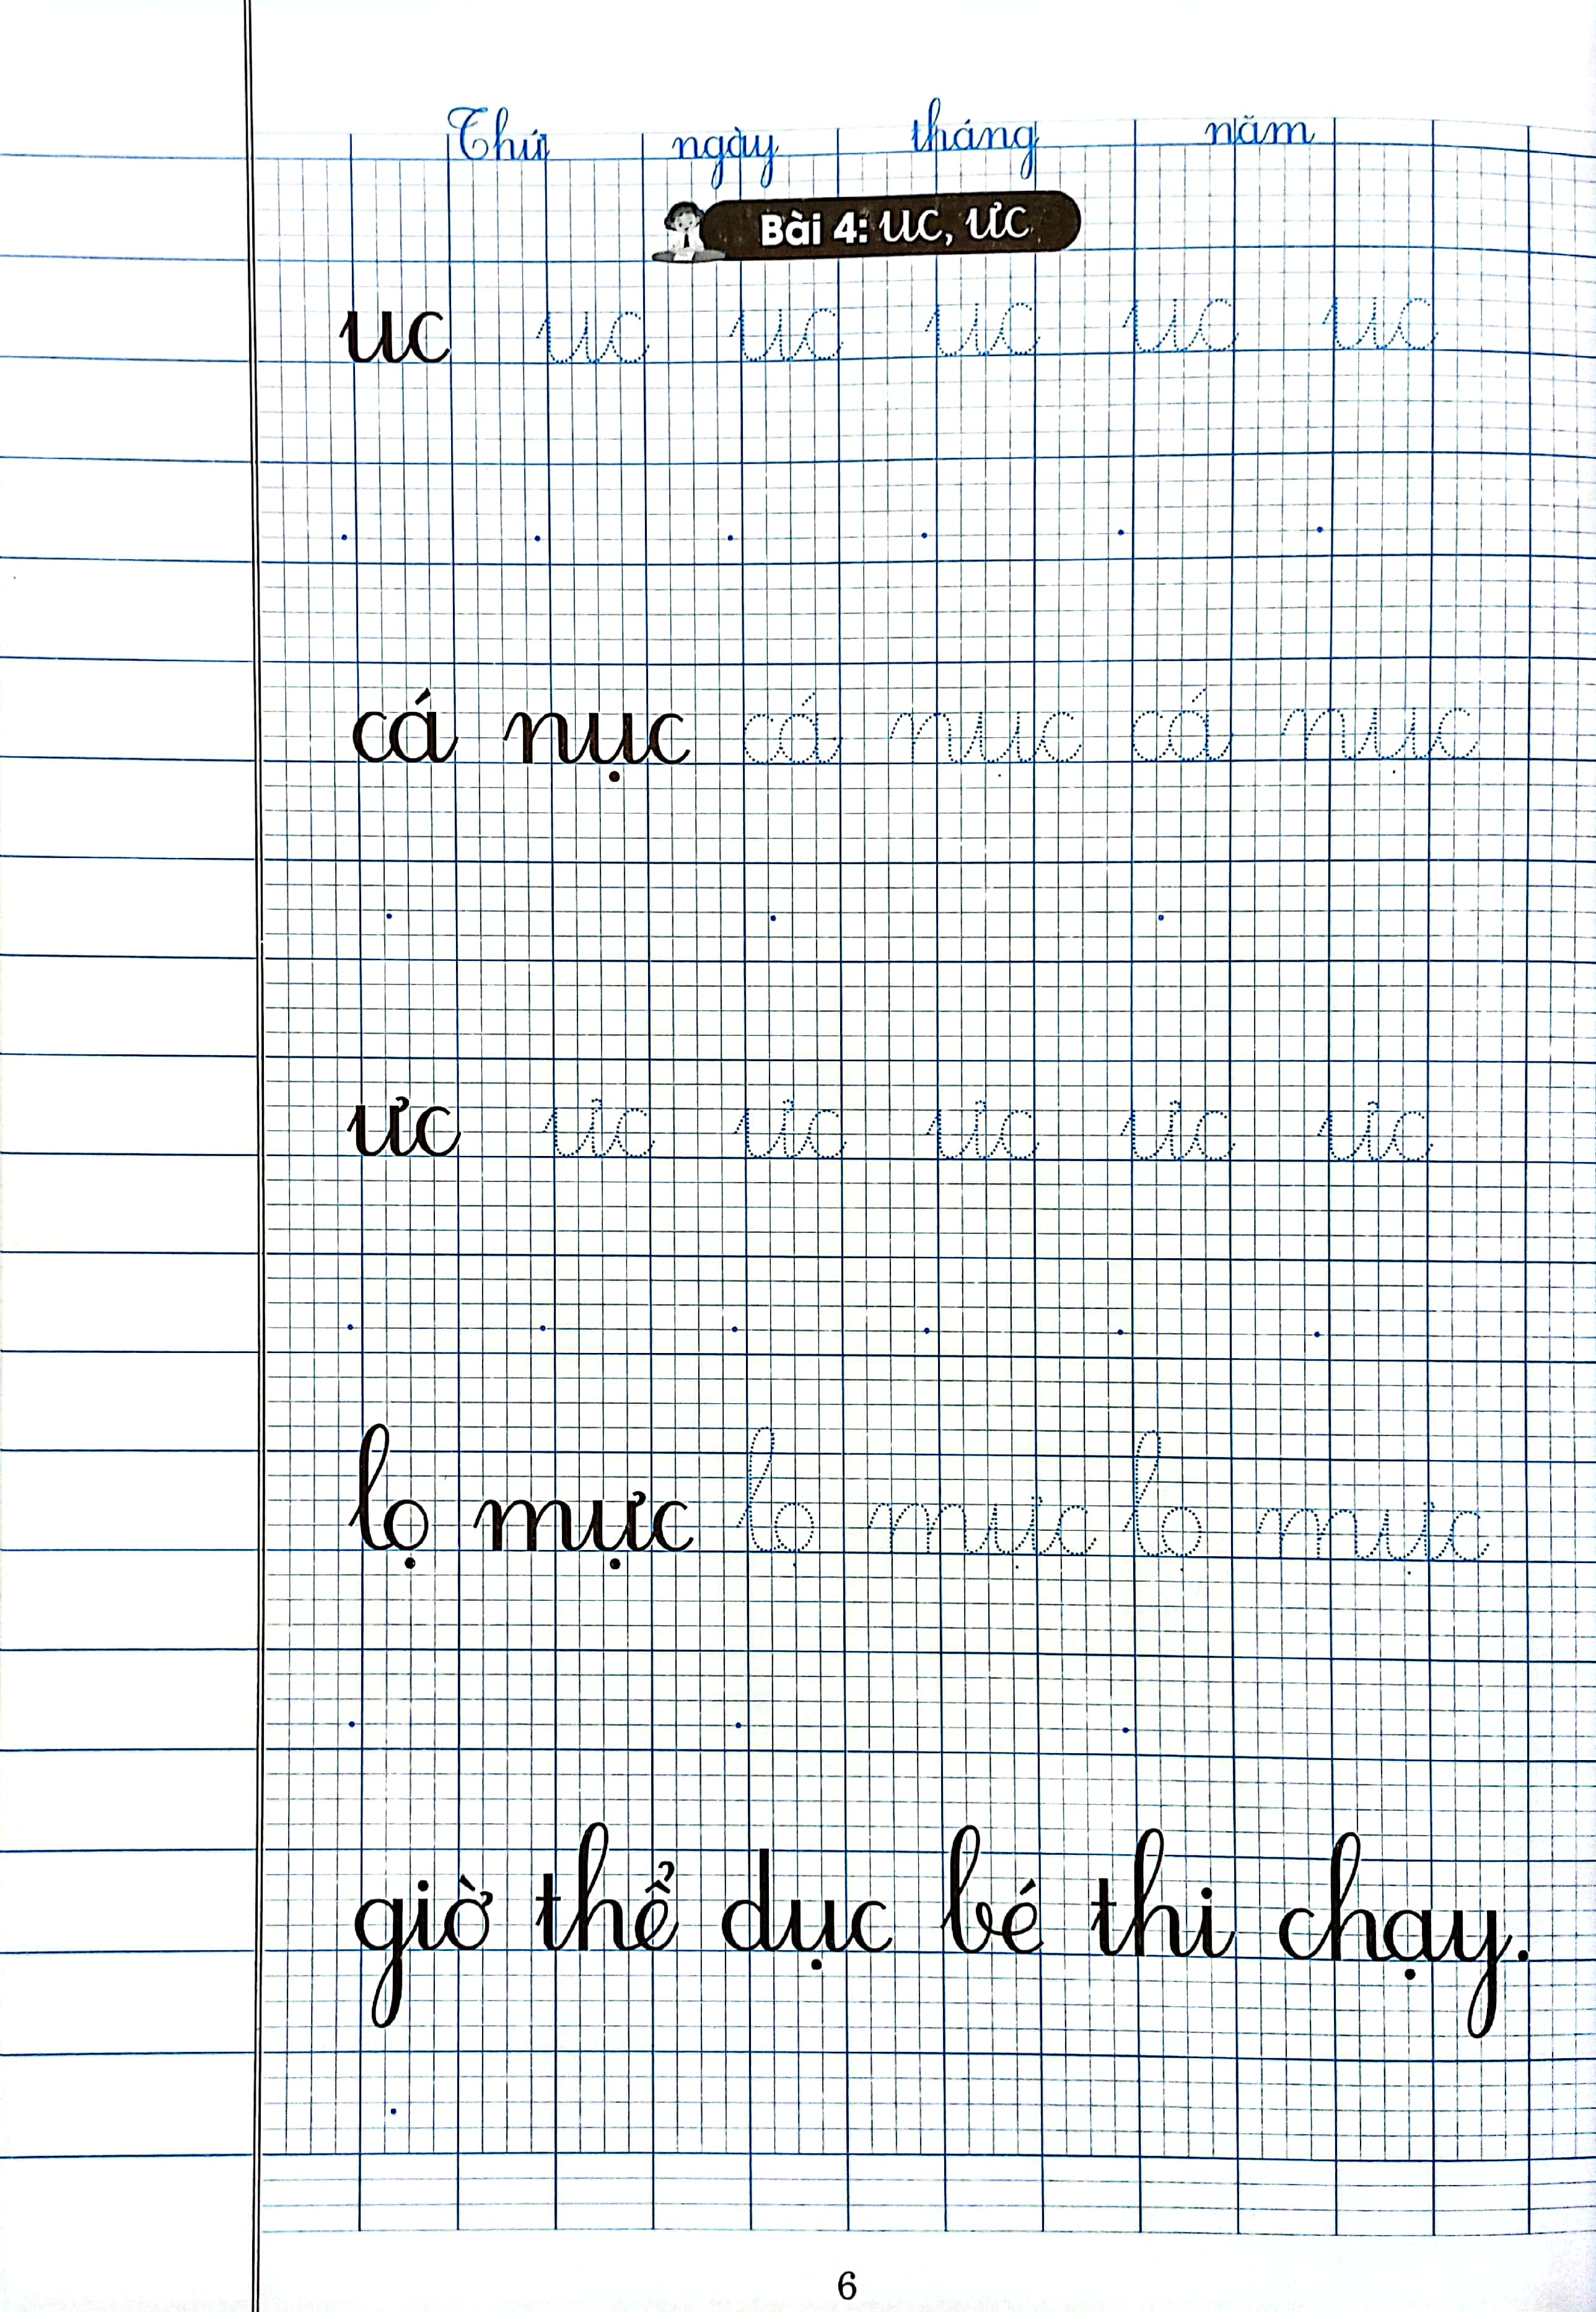 Thứ ngày tháng năm
Bài 4: uc, ưc
uc uc uc uc uc uc
cá nục cá nục cá nục
ưc ưc ưc ưc ưc ưc
lọ mực lọ mực lọ mực
giờ thể dục bé thi chạy.
6